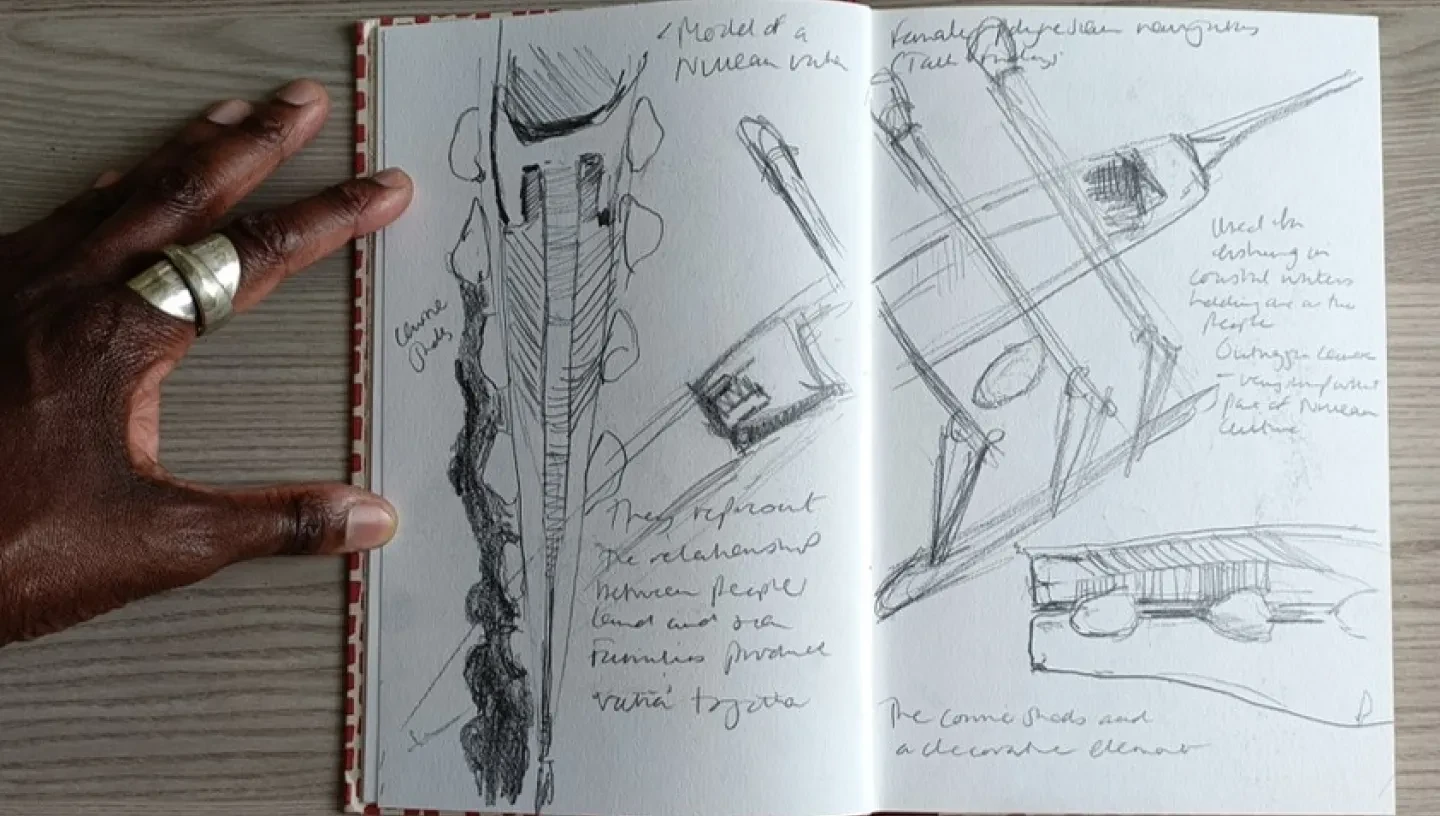 Model of a
Niuean vaka
Cowrie
shells
They represent
the relationship
between people
land and sea
Families produce
'vaka' together
Female Polynesian navigators
(Talk
Used for
fishing in
coastal waters
as the
people
Outrigger canoe
- very important
part of Niuean
culture
The cowrie shells add
a decorative element